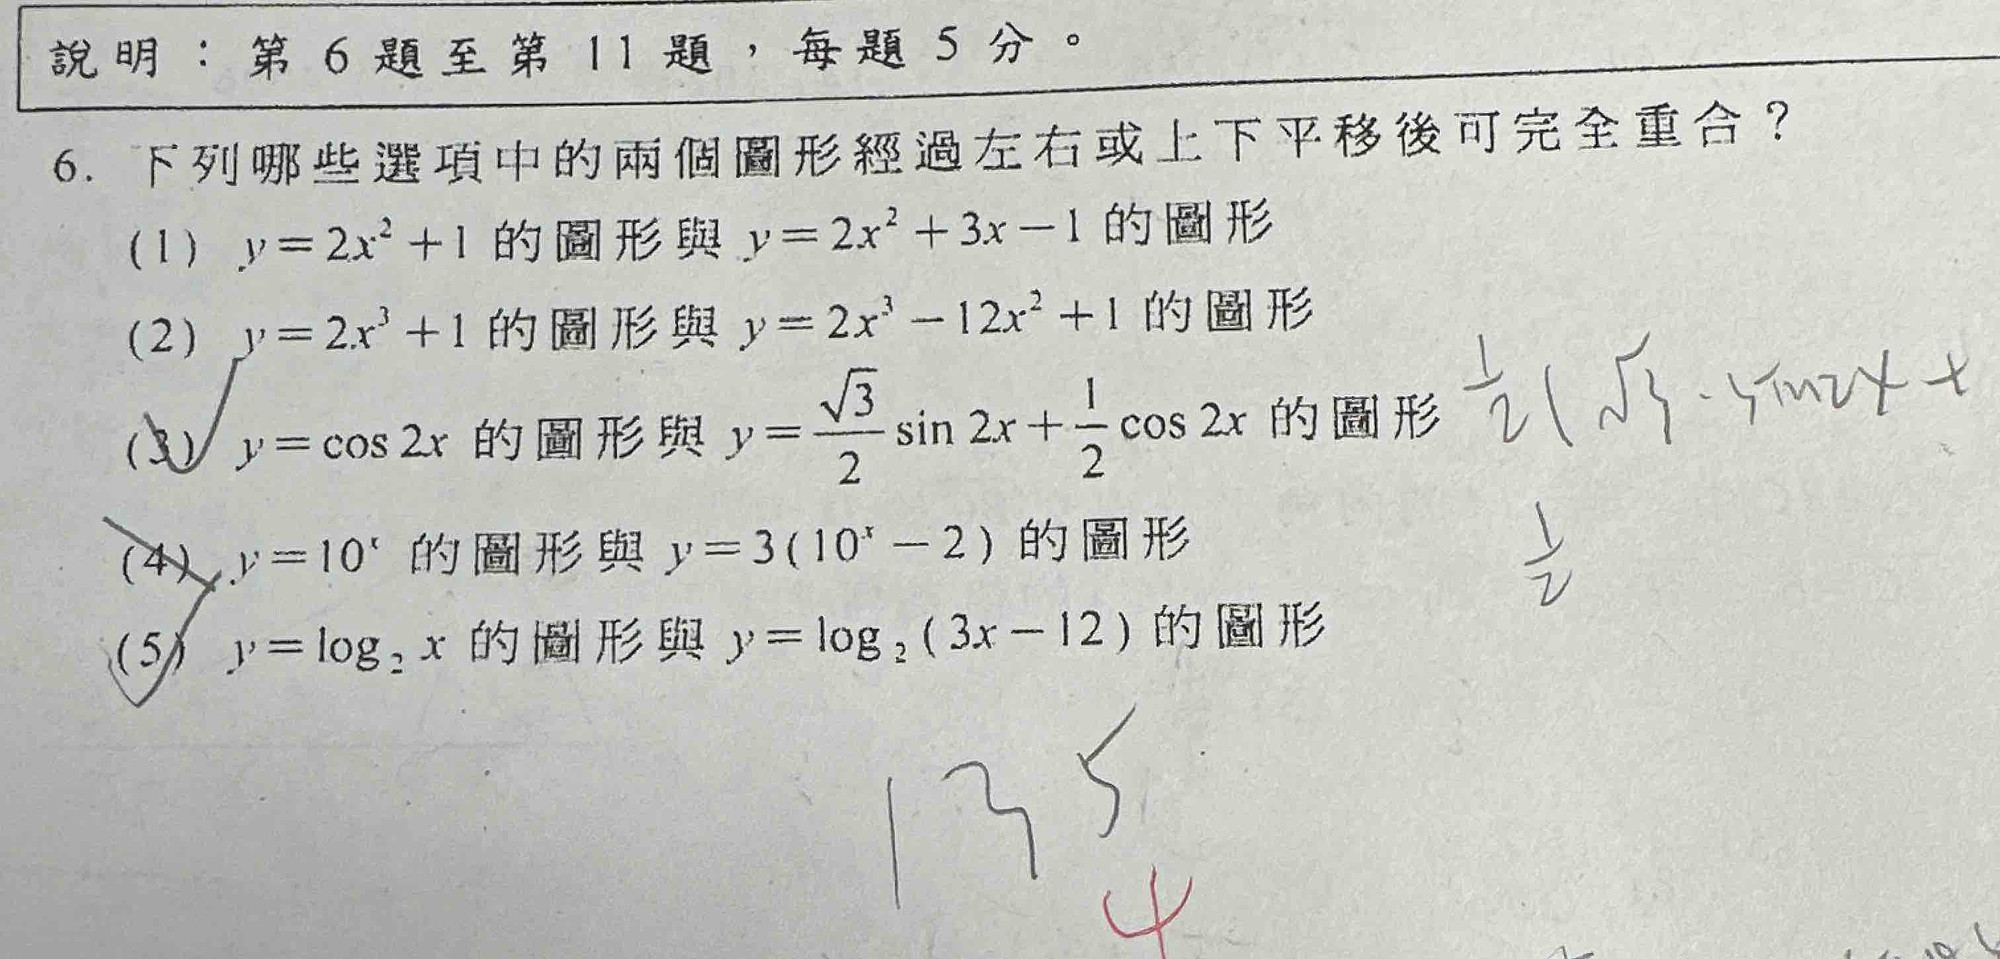 說明：第 6 題至第 11 題，每題 5 分。
6. 下列哪些選項中的兩個圖形經過左右或上下平移後可完全重合？
(1) y=2x²+1 的圖形與 y=2x²+3x−1 的圖形
(2) y=2x³+1 的圖形與 y=2x³−12x²+1 的圖形
(3) y=cos 2x 的圖形與 y=√3/2 sin 2x+1/2 cos 2x 的圖形 1/2(√3·sin2x+
(4) y=10ˣ 的圖形與 y=3(10ˣ−2) 的圖形 1/2
(5) y=log₂ x 的圖形與 y=log₂(3x−12) 的圖形
135
4